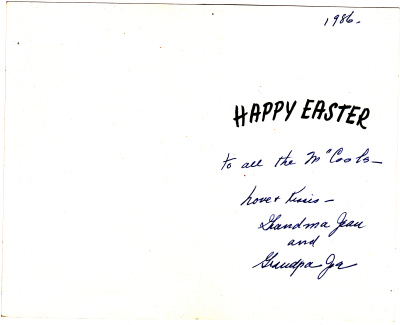 1986.
HAPPY EASTER
to all the McCools—
Love & Kisses —
Grandma Jean
and
Grandpa Joe